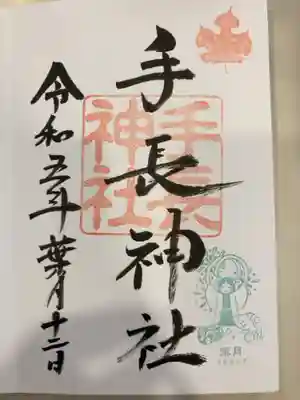 手長神社
令和五年葉月十二日
手長
神社
葉月